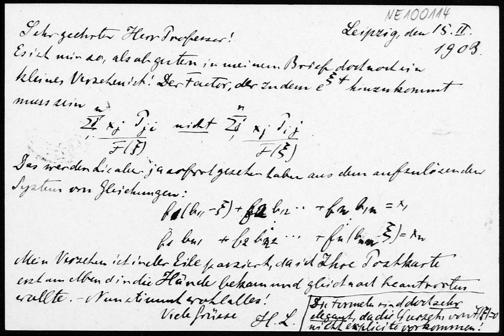 NE100114
Leipzig, den 15. II.
1903.
Sehr geehrter Herr Professor!
Es ist mir so, als ob gestern in meinem Brief doch noch ein
kleines Versehen ist! Der Factor, der zu dem e^{ξt} hinzukommt
muss sein
Σ x_j T_{ji} / F'(ξ) nicht Σ x_j T_{ij} / F'(ξ)
Das werden Sie aber ja sofort gesehen haben aus dem aufzulösenden
System von Gleichungen:
f_1(b_{11} - ξ) + f_2 b_{12} ··· + f_n b_{1n} = x_1
f_1 b_{n1} + f_2 b_{n2} ··· + f_n(b_{nn} - ξ) = x_n
Mein Versehen ist in der Eile passiert, da ich Ihre Postkarte
erst am Abend in die Hände bekam und gleich noch beantworten
wollte. — Nun ist wohl alles!
Viele Grüsse
H. L.
Die Formeln sind doch sehr
elegant, da die
nicht explicite vorkommen.